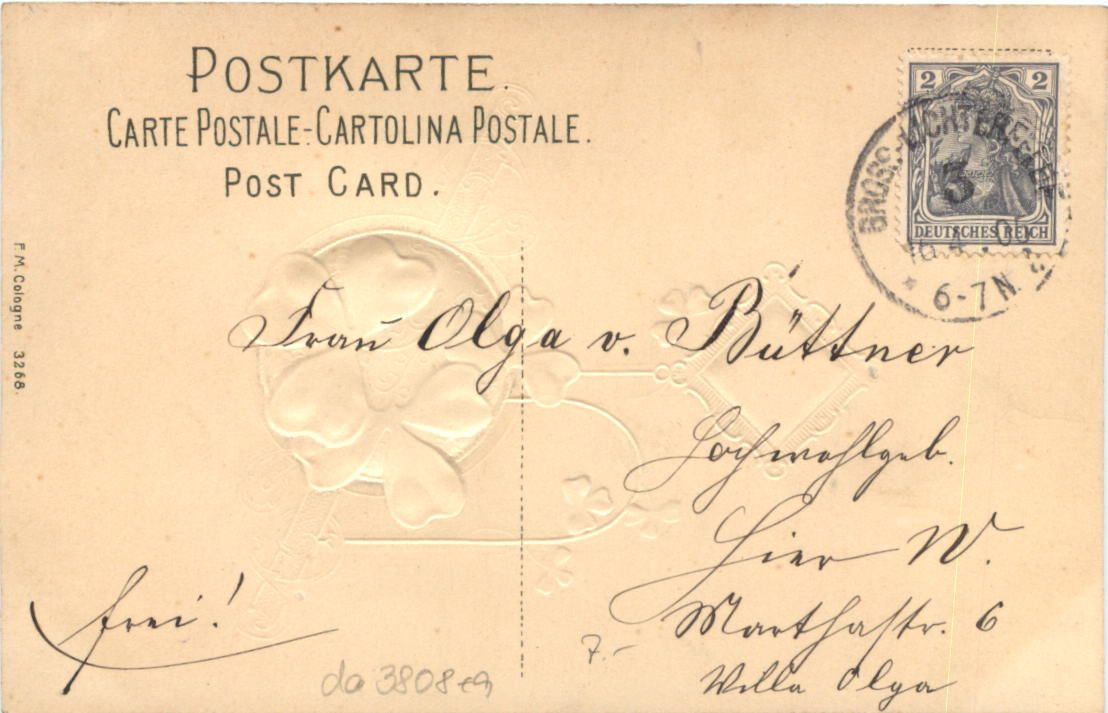 POSTKARTE.
CARTE POSTALE-CARTOLINA POSTALE.
POST CARD.
2 2
DEUTSCHES REICH
GROSS-LICHTERFELDE
3
16.4.06
6-7N.
F.M. Cologne 3268.
Frau Olga v. Büttner
Hochwohlgeb.
Hier W.
Marthastr. 6
Villa Olga
frei!
7.-
da 3808 ea